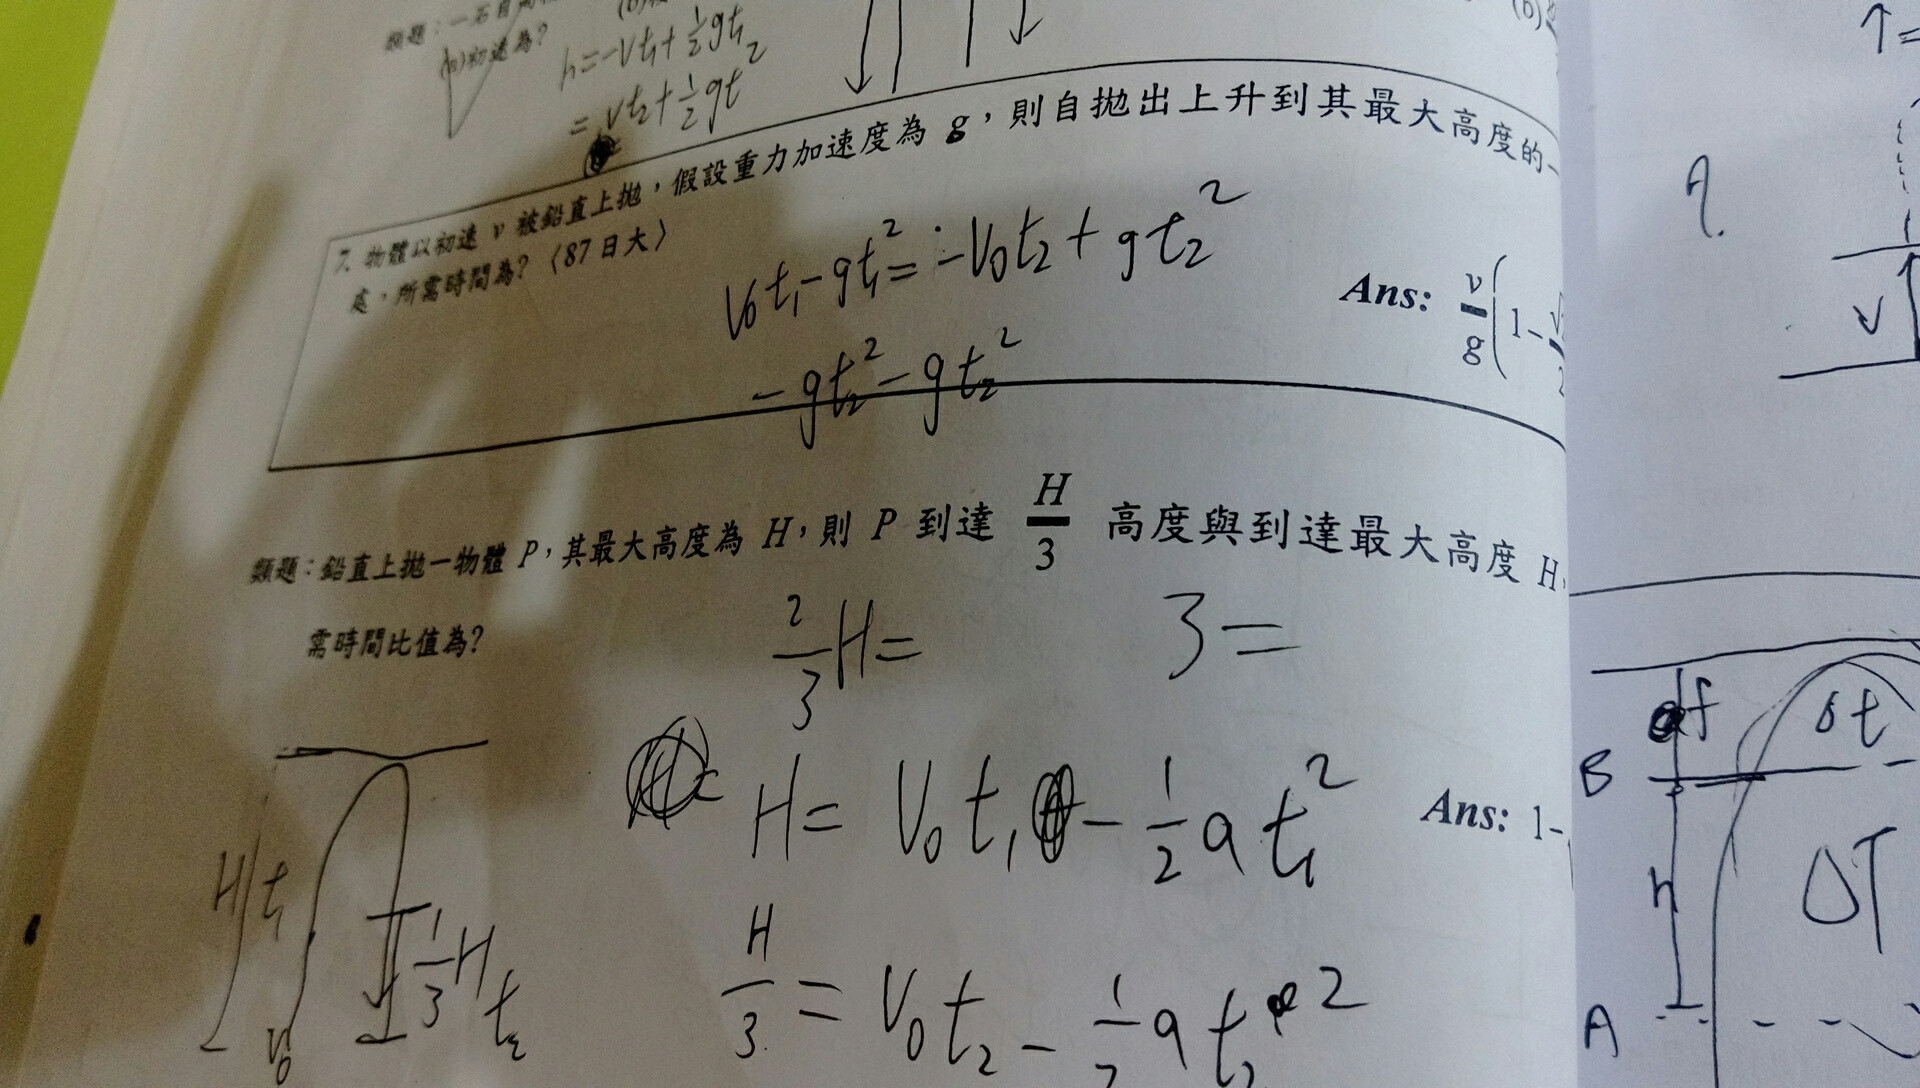 (b)
(a)初速為?
h=-Vt₁+½gt₁²
=Vt₂+½gt²
7. 物體以初速 v 被鉛直上拋，假設重力加速度為 g，則自拋出上升到其最大高度的一
處，所需時間為?〈87日大〉
V₀t₁-gt₁²=-V₀t₂+gt₂²
Ans: v/g(1-
-gt₂²-gt₂²
類題：鉛直上拋一物體 P，其最大高度為 H，則 P 到達 H/3 高度與到達最大高度 H
需時間比值為?
2/3H= 3=
H= V₀t₁-½at₁²
Ans: 1-
H t₁
V₀
⅓H t₂
H/3=V₀t₂-½at₂²
A.
V
B
δt
h
ΔT
A